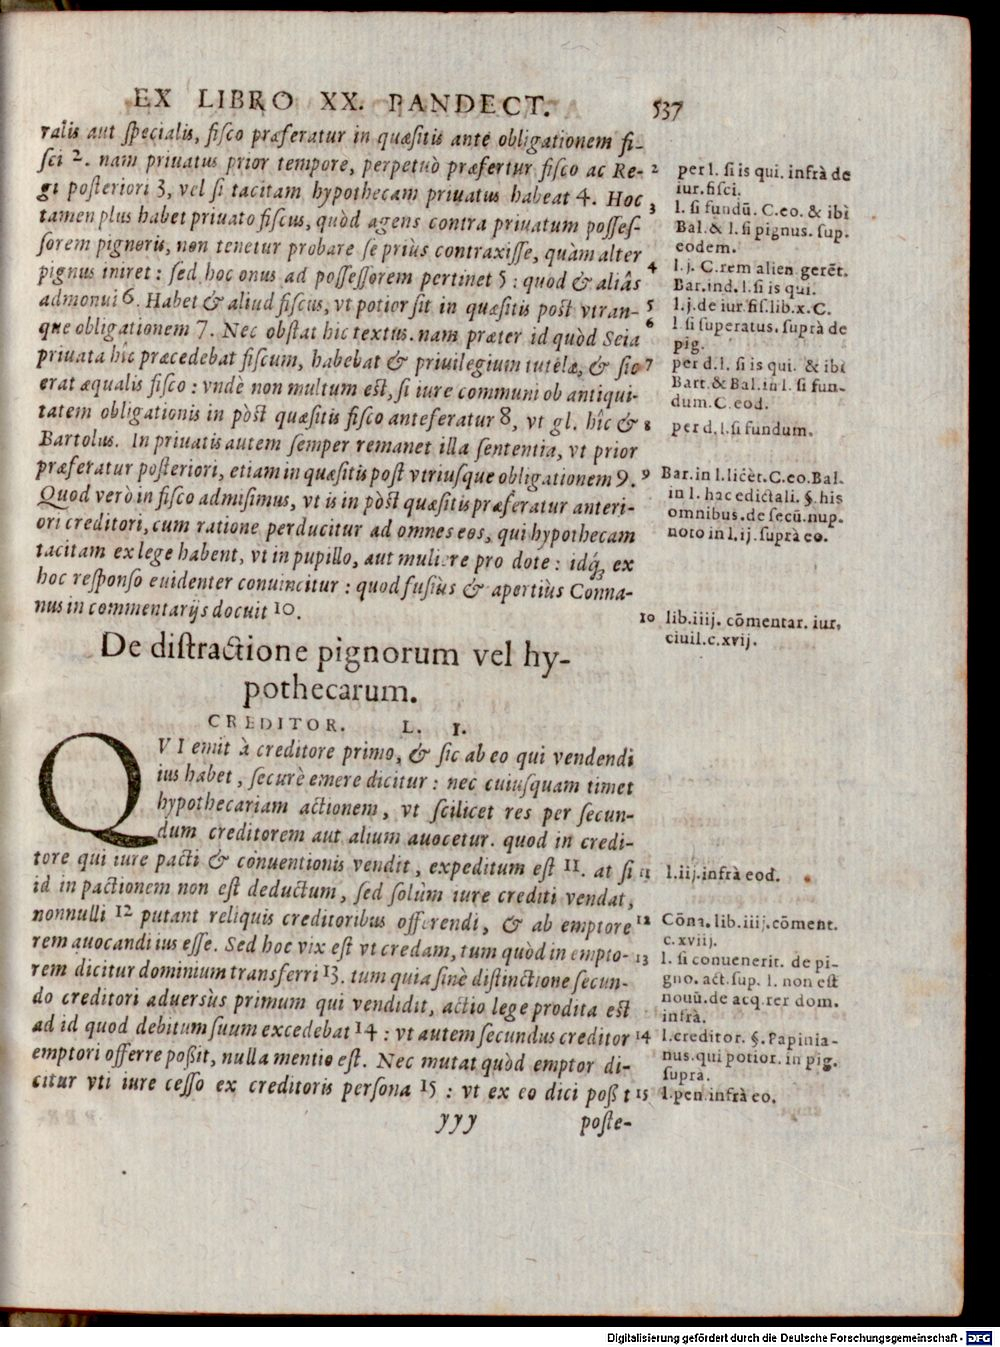 EX LIBRO XX. PANDECT. 537
ralis aut specialis, fisco præferatur in quæsitis ante obligationem fi-
sci 2. nam priuatus prior tempore, perpetuò præfertur fisco ac Re-
gi posteriori 3, vel si tacitam hypothecam priuatus habeat 4. Hoc
tamen plus habet priuato fiscus, quòd agens contra priuatum posses-
sorem pignoris, non tenetur probare se priùs contraxisse, quàm alter
pignus iniret : sed hoc onus ad possessorem pertinet 5 : quod & aliâs
admonui 6. Habet & aliud fiscus, vt potior sit in quæsitis post vtran-
que obligationem 7. Nec obstat hic textus. nam præter id quòd Seia
priuata hîc præcedebat fiscum, habebat & priuilegium tutelæ, & sic
erat æqualis fisco : vndè non multum est, si iure communi ob antiqui-
tatem obligationis in pòst quæsitis fisco anteferatur 8, vt gl. hîc &
Bartolus. In priuatis autem semper remanet illa sententia, vt prior
præferatur posteriori, etiam in quæsitis post vtriusque obligationem 9.
Quod verò in fisco admisimus, vt is in pòst quæsitis præferatur anteri-
ori creditori, cum ratione perducitur ad omnes eos, qui hypothecam
tacitam ex lege habent, vt in pupillo, aut muliere pro dote : idq́; ex
hoc responso euidenter conuincitur : quod fusiùs & apertiùs Conna-
nus in commentarijs docuit 10.
2 per l. si is qui. infrà de
iur. fisci.
3 l. si fundū. C. eo. & ibi
Bal. & l. si pignus. sup.
eodem.
4 l. j. C. rem alien gerēt.
Bar. ind. l. si is qui.
5 l. j. de iur. fis. lib. x. C.
6 l. si superatus. suprà de
pig.
7 per d. l. si is qui. & ibi
Bart. & Bal. in l. si fun-
dum. C. eod.
8 per d. l. si fundum.
9 Bar. in l. licèt. C. eo. Bal.
in l. hac edictali. §. his
omnibus. de secū. nup.
noto in l. ij. suprà eo.
10 lib. iiij. cōmentar. iur.
ciuil. c. xvij.
De distractione pignorum vel hy-
pothecarum.
CREDITOR. L. I.
QVI emit à creditore primo, & sic ab eo qui vendendi
ius habet, securè emere dicitur : nec cuiusquam timet
hypothecariam actionem, vt scilicet res per secun-
dum creditorem aut alium auocetur. quod in credi-
tore qui iure pacti & conuentionis vendit, expeditum est 11. at si
id in pactionem non est deductum, sed solùm iure crediti vendat,
nonnulli 12 putant reliquis creditoribus offerendi, & ab emptore
rem auocandi ius esse. Sed hoc vix est vt credam, tum quòd in empto-
rem dicitur dominium transferri 13. tum quia sinè distinctione secun-
do creditori aduersùs primum qui vendidit, actio lege prodita est
ad id quod debitum suum excedebat 14 : vt autem secundus creditor
emptori offerre poßit, nulla mentio est. Nec mutat quòd emptor di-
citur vti iure cesso ex creditoris persona 15 : vt ex eo dici poß t
11 l. iij. infrà eod.
12 Cōna. lib. iiij. cōment.
c. xviij.
13 l. si conuenerit. de pi-
gno. act. sup. l. non est
nouū. de acq. rer dom.
infrà.
14 l. creditor. §. Papinia-
nus. qui potior. in pig.
suprà.
15 l. pen. infrà eo.
yyy poste-
Digitalisierung gefördert durch die Deutsche Forschungsgemeinschaft - DFG